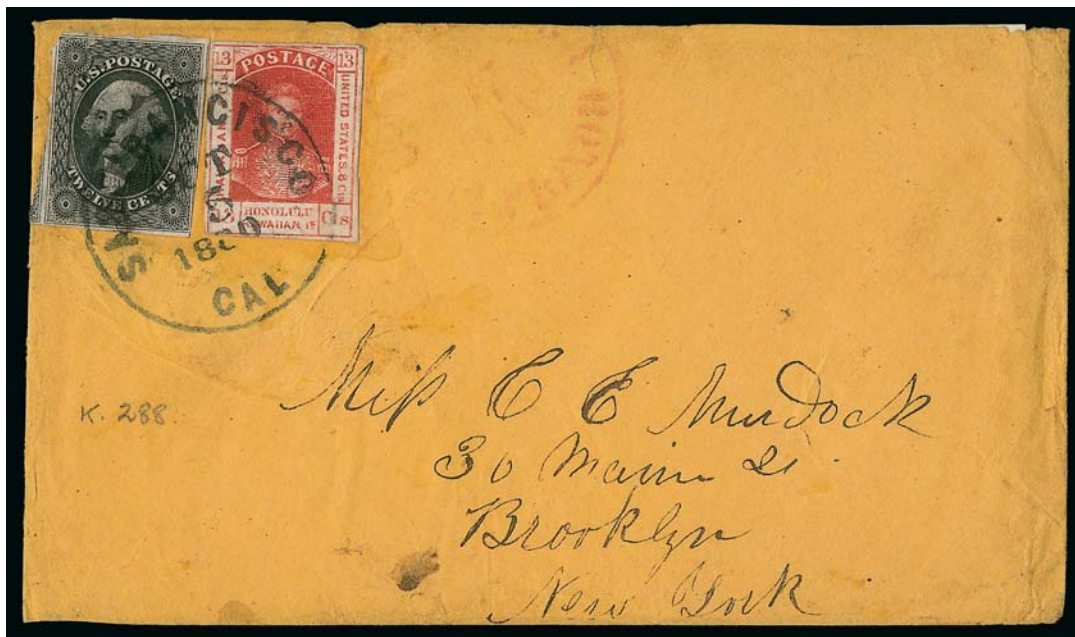 U.S. POSTAGE
TWELVE CENTS
13 POSTAGE 13
UNITED STATES. 8 Cts
HONOLULU Cts
HAWAIIAN Is
SAN FRANCISCO
1860
CAL
K. 288.
Miſs C E Murdock
30 Main St.
Brooklyn
New York